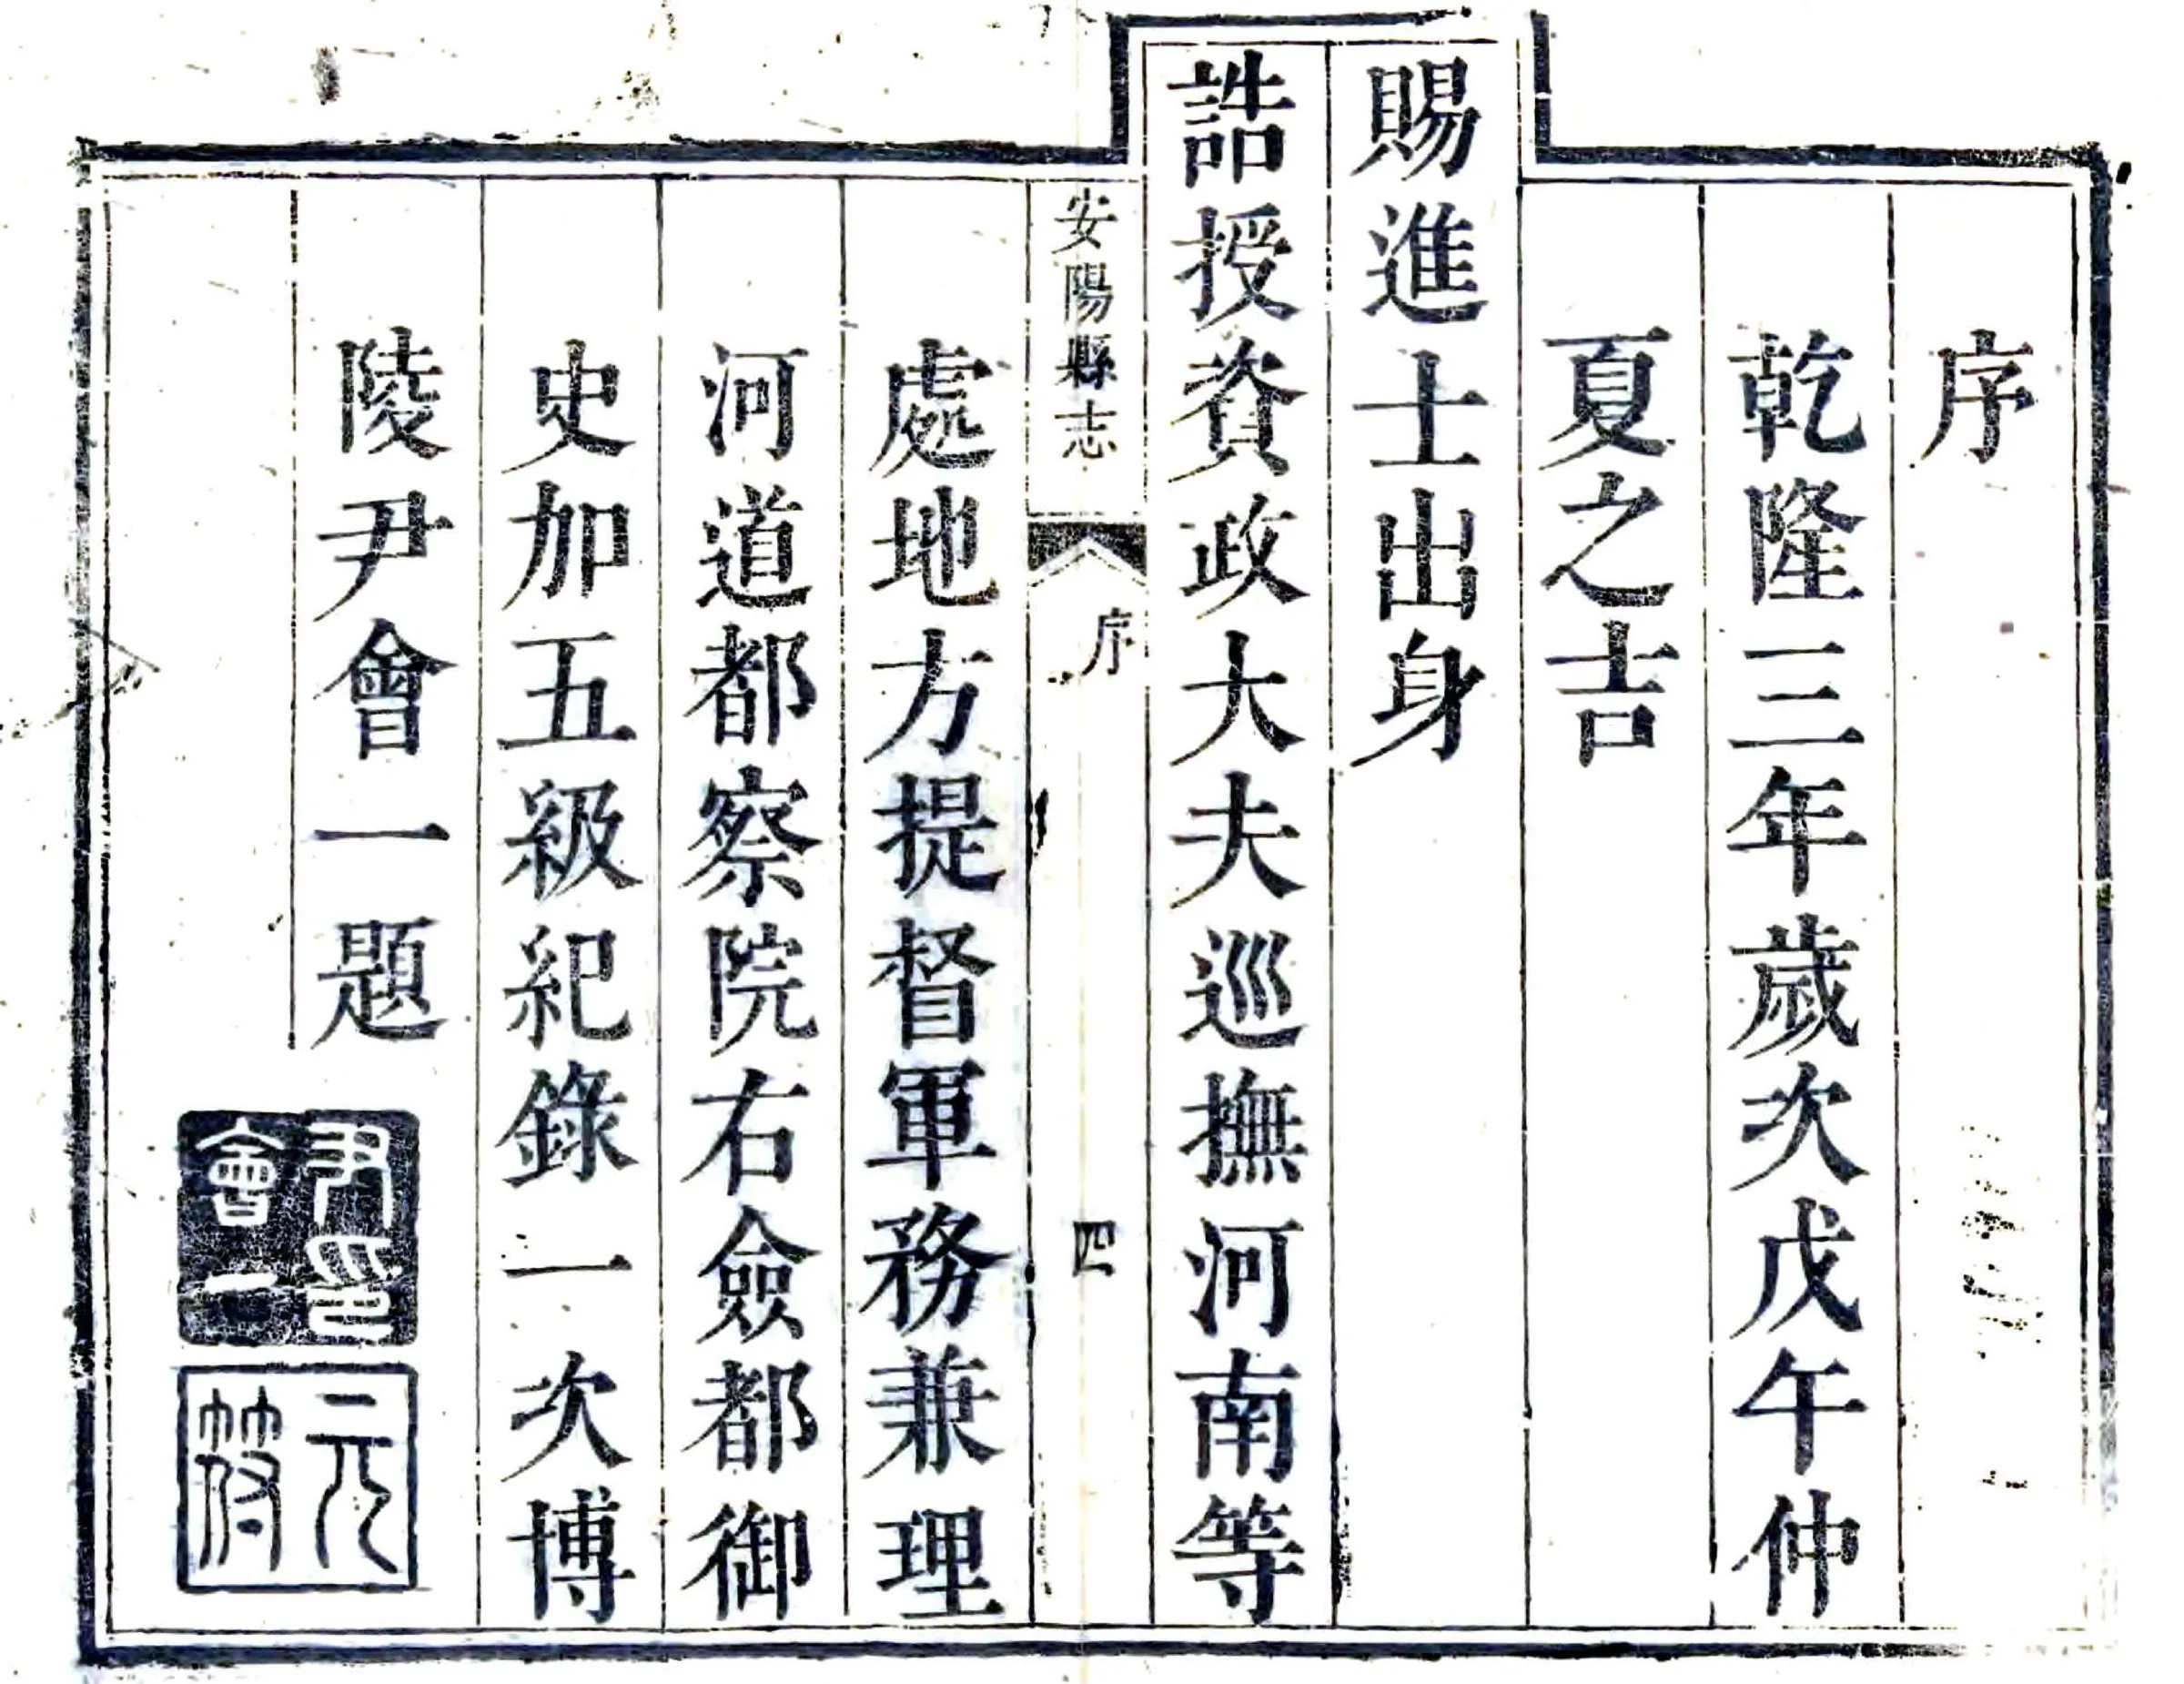 序
乾隆三年歲次戊午仲
夏之吉
賜進士出身
誥授資政大夫巡撫河南等
安陽縣志
序
四
處地方提督軍務兼理
河道都察院右僉都御
史加五級紀錄一次博
陵尹會一題
尹印
會一
元
符